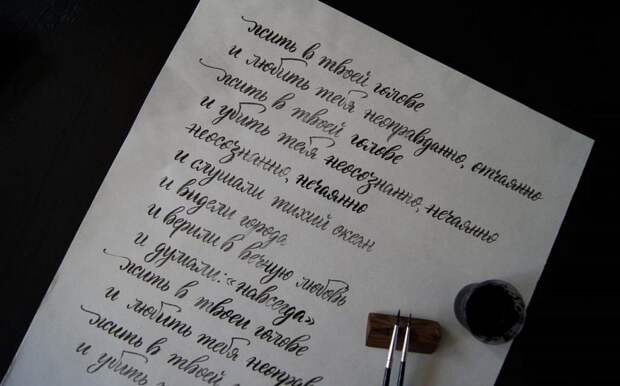 жить в твоей голове
и любить тебя неоправданно, отчаянно
жить в твоей голове
и убить тебя неосознанно, нечаянно
неосознанно, нечаянно
и слушали тихий океан
и видели города
и верили в вечную любовь
и думали: «навсегда»
жить в твоей голове
и любить тебя неоправ
жить в твоей
и убить